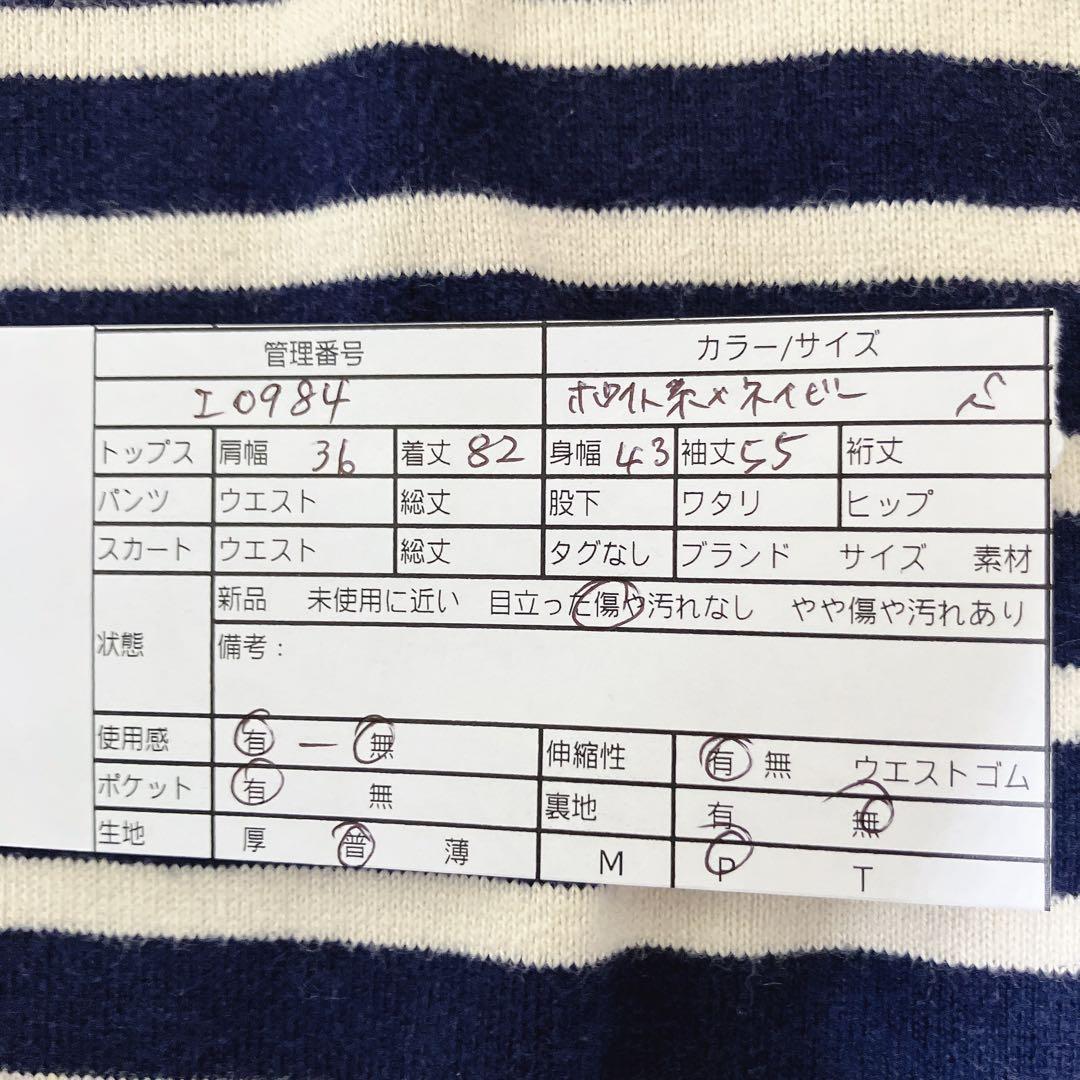 管理番号 カラー/サイズ
I0984 ホワイト系×ネイビー
トップス 肩幅 36 着丈 82 身幅 43 袖丈 55 裄丈
パンツ ウエスト 総丈 股下 ワタリ ヒップ
スカート ウエスト 総丈 タグなし ブランド サイズ 素材
状態 新品 未使用に近い 目立った傷や汚れなし やや傷や汚れあり
備考：
使用感 有 ー 無 伸縮性 有 無 ウエストゴム
ポケット 有 無 裏地 有 無
生地 厚 普 薄 M P T